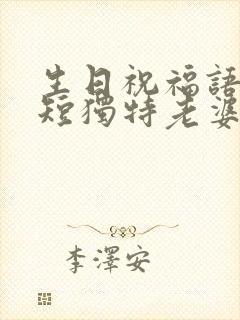 生日祝福語
短獨特老婆
李澤安